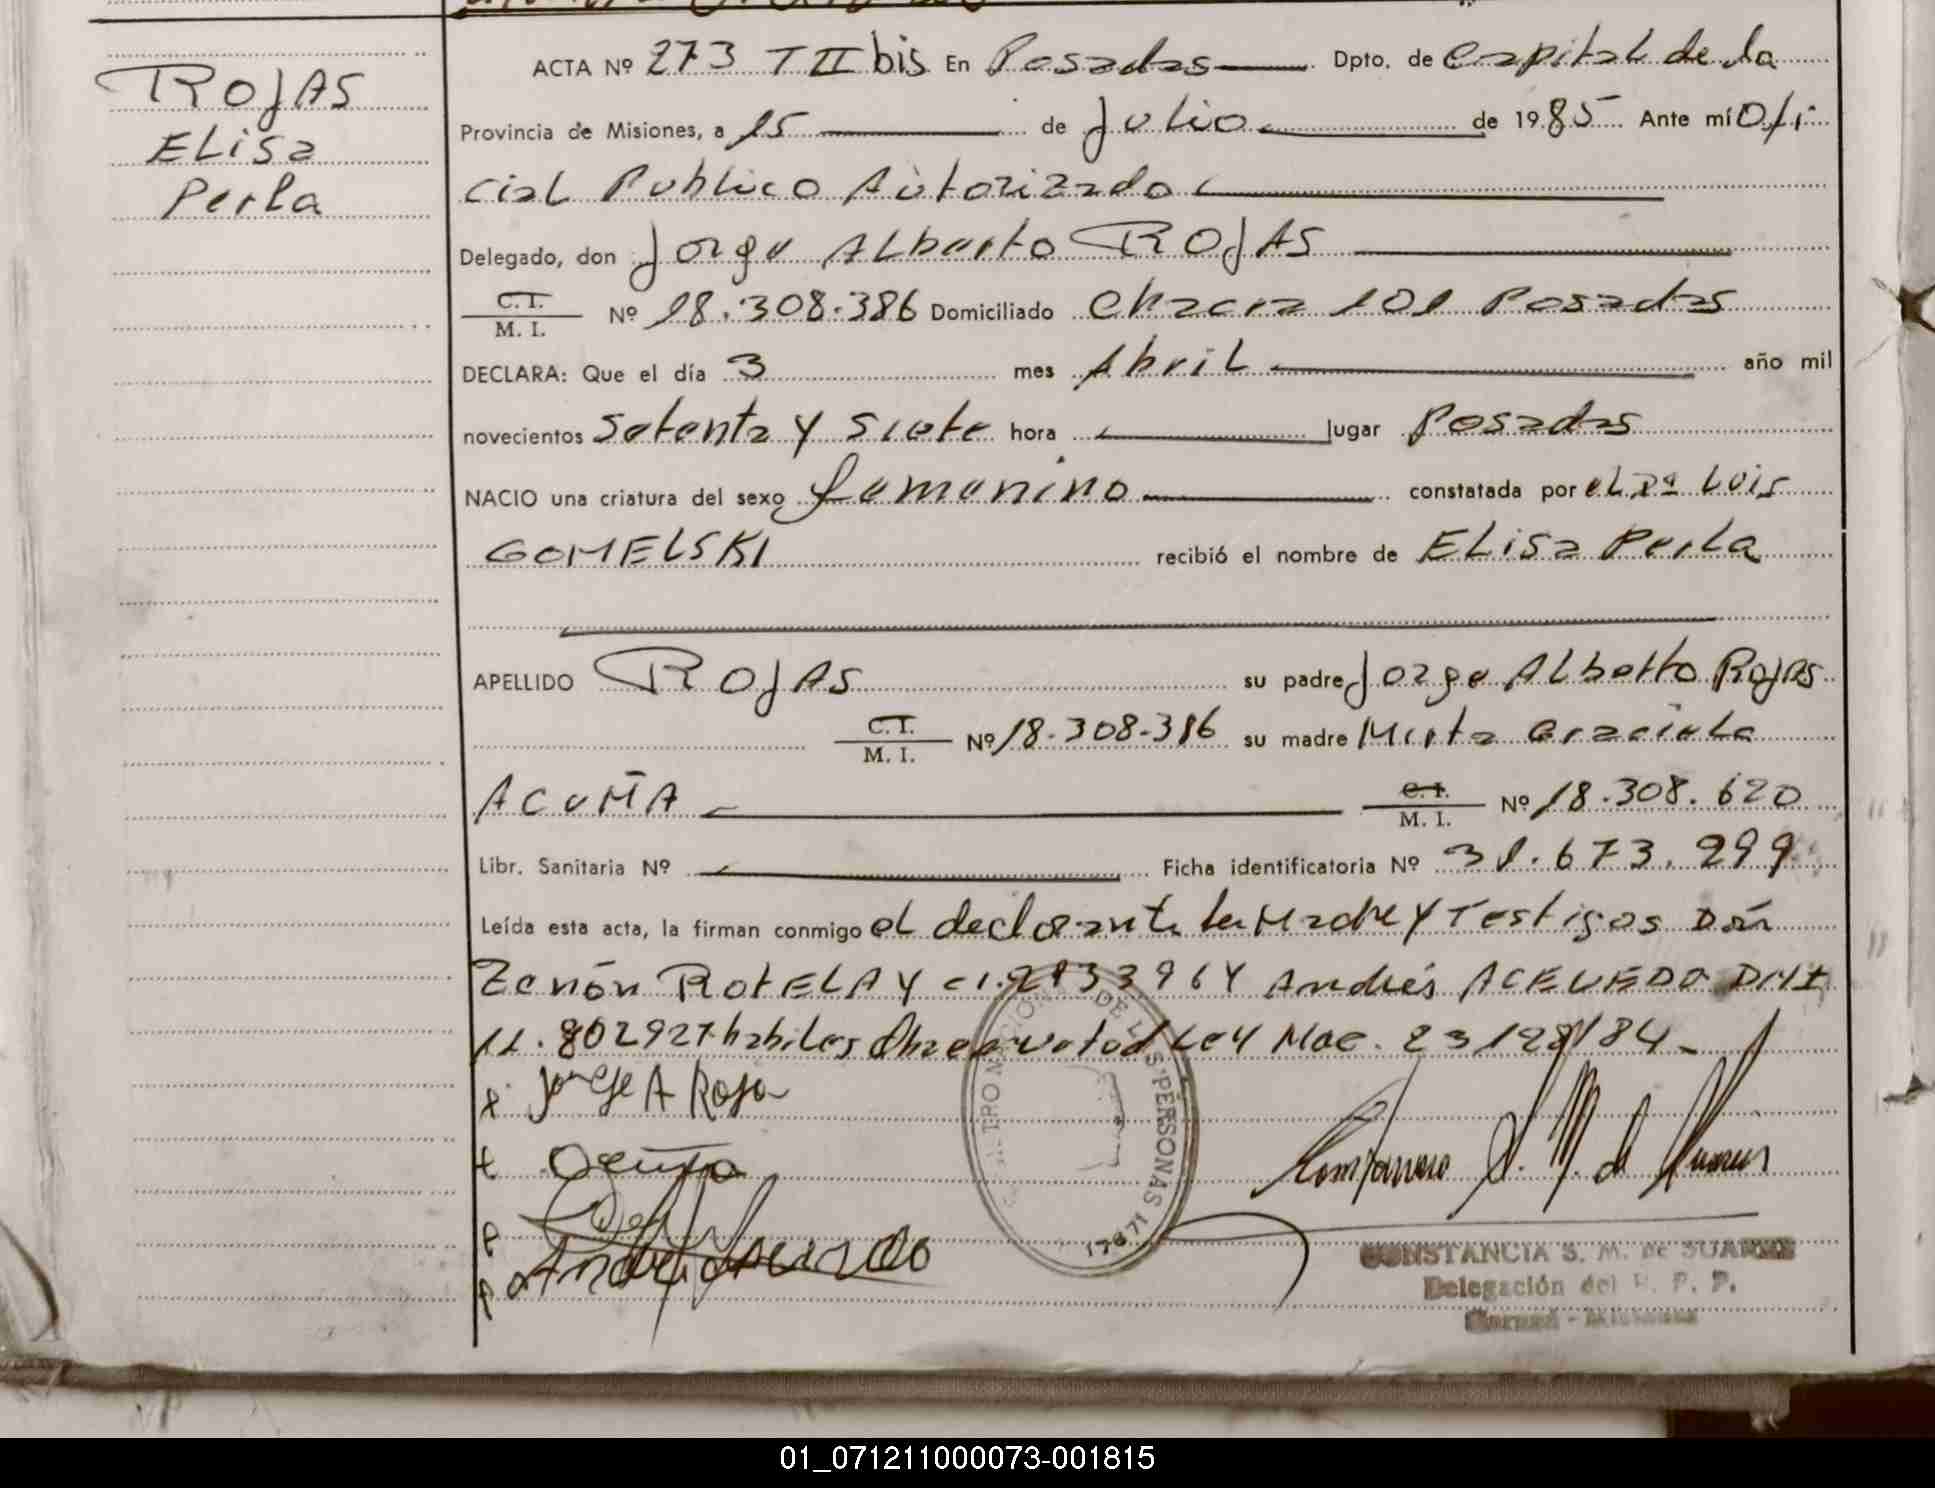 ROJAS
ELisa
Perla
ACTA Nº 273 T II bis En Posadas Dpto. de Capital de la
Provincia de Misiones, a 15 de Julio de 1985 Ante mí Ofi
cial Publico Autorizado
Delegado, don Jorge Alberto ROJAS
C.I.
M. I. Nº 18.308.386 Domiciliado Chacra 101 Posadas
DECLARA: Que el día 3 mes Abril año mil
novecientos setenta y siete hora lugar Posadas
NACIO una criatura del sexo femenino constatada por el Dr Luis
GOMELSKI recibió el nombre de ELisa Perla
APELLIDO ROJAS su padre Jorge Alberto Rojas
C.I.
M. I. Nº 18.308.386 su madre Mirta Graciela
ACUÑA C.I.
M. I. Nº 18.308.620
Libr. Sanitaria Nº Ficha identificatoria Nº 31.673.299
Leída esta acta, la firman conmigo el declarante la Madre y Testigos Don
Zenón ROTELA Y CI. Andrés ACEVEDO DMI
11.802927 habiles Ley Nac. 23128/84-
x Jorge A Rojas
x Acuña
REGISTRO NACIONAL DE LAS PERSONAS 17671
CONSTANCIA S. M. DE SUAREZ
Delegación del R. P. P.
Garupá - Misiones
01_071211000073-001815